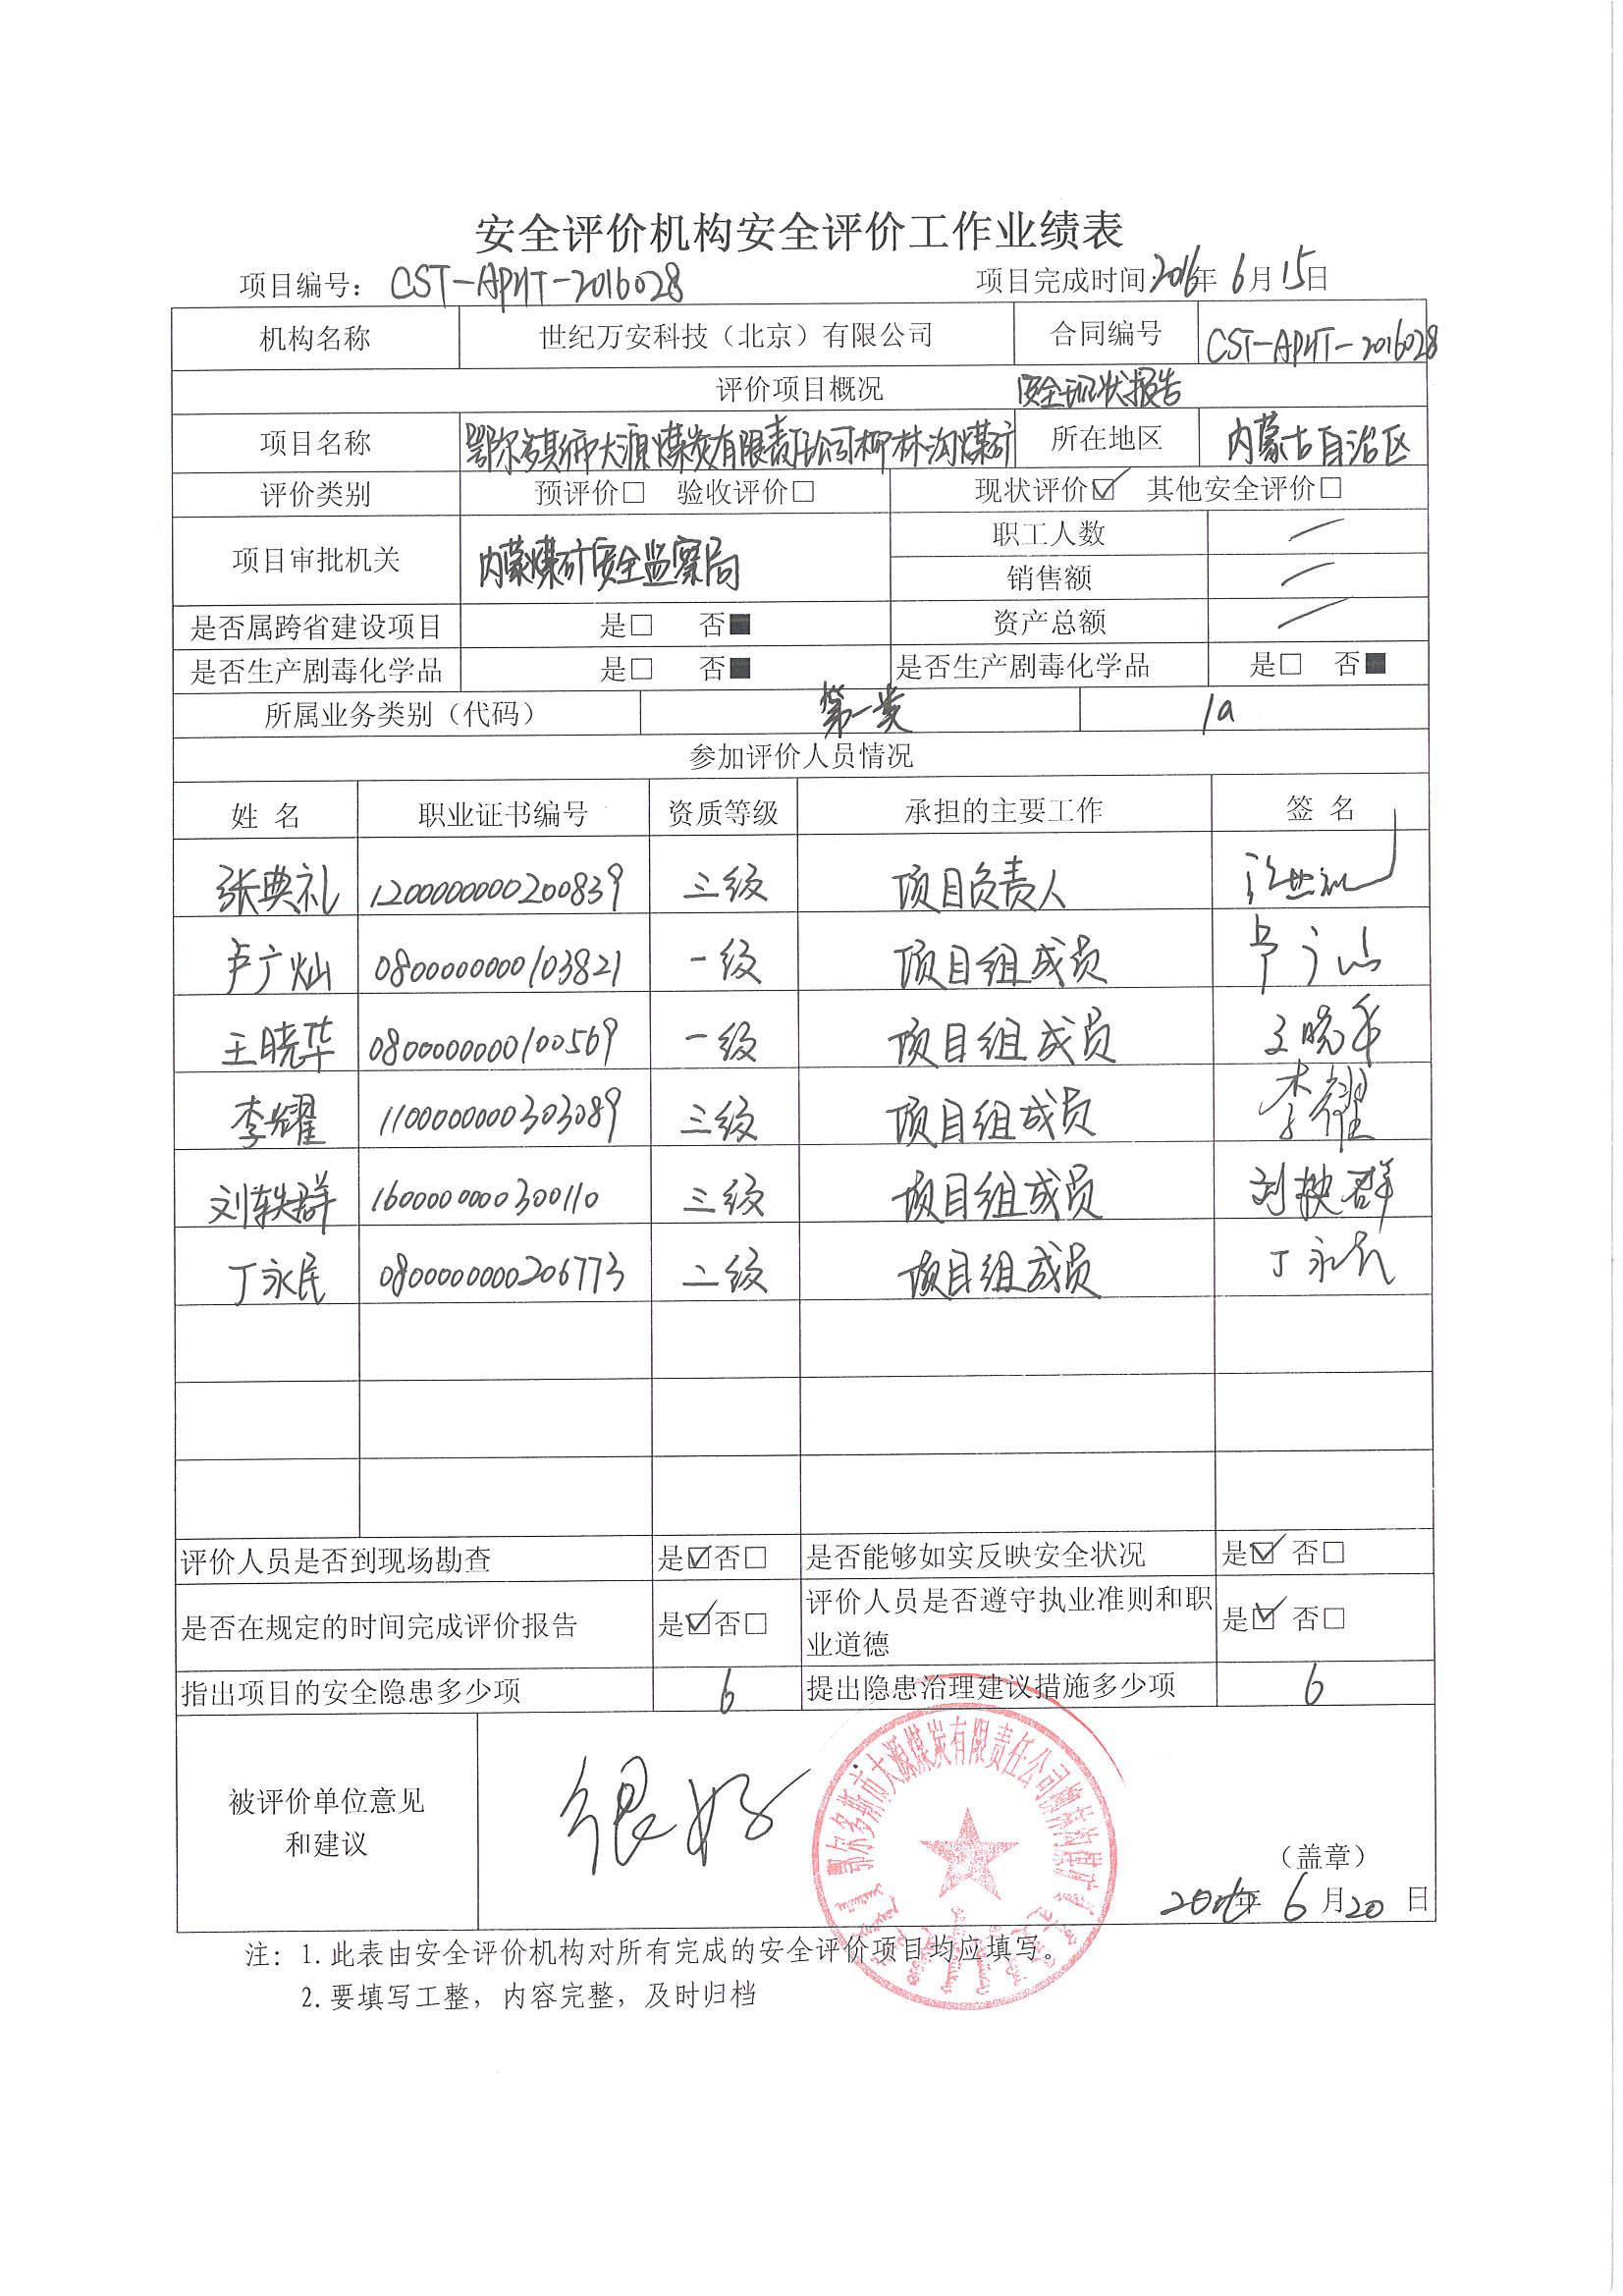 安全评价机构安全评价工作业绩表
项目编号：CST-APHT-2016028 项目完成时间：2016年6月15日
机构名称 世纪万安科技（北京）有限公司 合同编号 CST-APHT-2016028
评价项目概况 安全现状报告
项目名称 鄂尔多斯市大源煤炭有限责任公司柳林沟煤矿 所在地区 内蒙古自治区
评价类别 预评价□ 验收评价□ 现状评价☑ 其他安全评价□
项目审批机关 内蒙煤矿安全监察局 职工人数 /
销售额 /
是否属跨省建设项目 是□ 否■ 资产总额 /
是否生产剧毒化学品 是□ 否■ 是否生产剧毒化学品 是□ 否■
所属业务类别（代码） 第一类 1a
参加评价人员情况
姓名 职业证书编号 资质等级 承担的主要工作 签名
张典礼 1200000000200839 三级 项目负责人
卢广灿 0800000000103821 一级 项目组成员 卢广灿
王晓华 0800000000100569 一级 项目组成员 王晓华
李耀 1100000000303089 三级 项目组成员 李耀
刘轶群 1600000000300110 三级 项目组成员 刘轶群
丁永民 0800000000206773 二级 项目组成员 丁永民
评价人员是否到现场勘查 是☑否□ 是否能够如实反映安全状况 是☑ 否□
是否在规定的时间完成评价报告 是☑否□ 评价人员是否遵守执业准则和职业道德 是☑ 否□
指出项目的安全隐患多少项 6 提出隐患治理建议措施多少项 6
被评价单位意见
和建议
很好
鄂尔多斯市大源煤炭有限责任公司柳林沟煤矿
（盖章）
2016年6月20日
注：1.此表由安全评价机构对所有完成的安全评价项目均应填写。
2.要填写工整，内容完整，及时归档